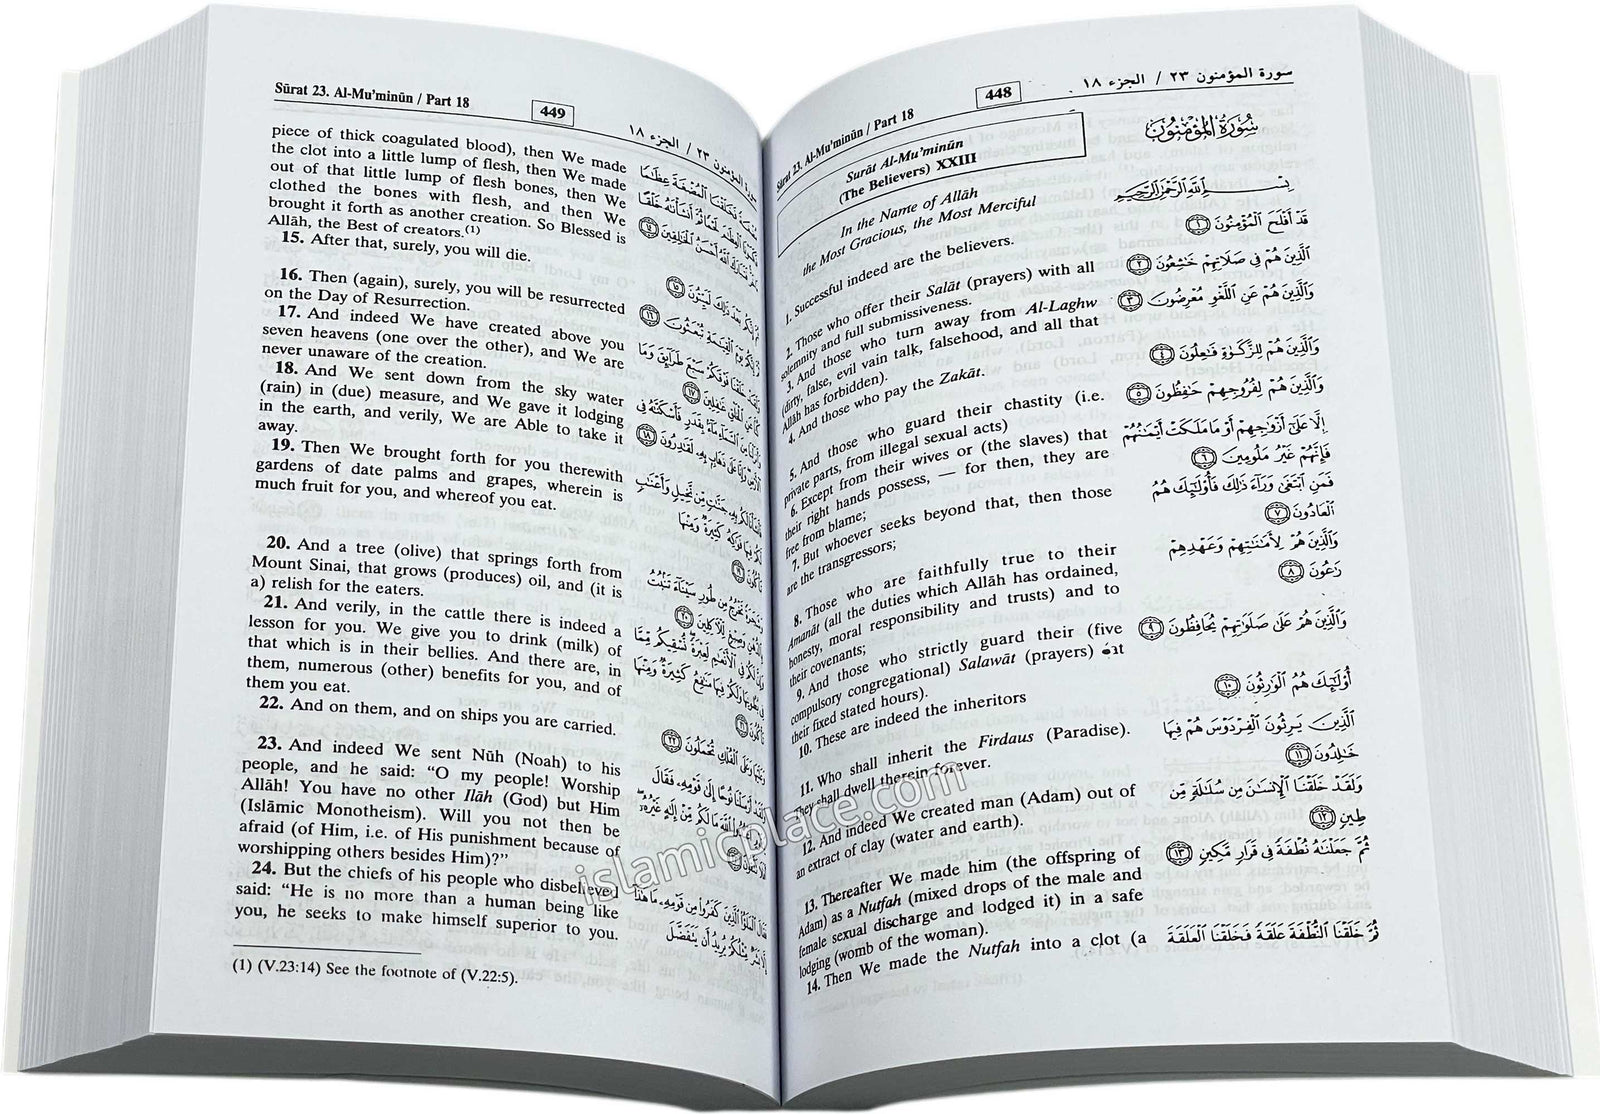 سورة المؤمنون ٢٣ / الجزء ١٨
448
Sūrat 23. Al-Mu’minūn / Part 18
Surāt Al-Mu’minūn
(The Believers) XXIII
In the Name of Allāh
the Most Gracious, the Most Merciful
1. Successful indeed are the believers.
2. Those who offer their Salāt (prayers) with all
solemnity and full submissiveness.
3. And those who turn away from Al-Laghw
(dirty, false, evil vain talk, falsehood, and all that
Allāh has forbidden).
4. And those who pay the Zakāt.
5. And those who guard their chastity (i.e.
private parts, from illegal sexual acts)
6. Except from their wives or (the slaves) that
their right hands possess, — for then, they are
free from blame;
7. But whoever seeks beyond that, then those
are the transgressors;
8. Those who are faithfully true to their
Amanāt (all the duties which Allāh has ordained,
honesty, moral responsibility and trusts) and to
their covenants;
9. And those who strictly guard their (five
compulsory congregational) Salawāt (prayers) at
their fixed stated hours).
10. These are indeed the inheritors
11. Who shall inherit the Firdaus (Paradise).
They shall dwell therein forever.
12. And indeed We created man (Adam) out of
an extract of clay (water and earth).
13. Thereafter We made him (the offspring of
Adam) as a Nutfah (mixed drops of the male and
female sexual discharge and lodged it) in a safe
lodging (womb of the woman).
14. Then We made the Nutfah into a clot (a
سُورَةُ المُؤْمِنُونَ
بِسْمِ اللَّهِ الرَّحْمَٰنِ الرَّحِيمِ
قَدْ أَفْلَحَ الْمُؤْمِنُونَ ١
الَّذِينَ هُمْ فِي صَلَاتِهِمْ خَاشِعُونَ ٢
وَالَّذِينَ هُمْ عَنِ اللَّغْوِ مُعْرِضُونَ ٣
وَالَّذِينَ هُمْ لِلزَّكَوٰةِ فَاعِلُونَ ٤
وَالَّذِينَ هُمْ لِفُرُوجِهِمْ حَافِظُونَ ٥
إِلَّا عَلَىٰ أَزْوَاجِهِمْ أَوْ مَا مَلَكَتْ أَيْمَانُهُمْ
فَإِنَّهُمْ غَيْرُ مَلُومِينَ ٦
فَمَنِ ابْتَغَىٰ وَرَاءَ ذَٰلِكَ فَأُولَٰئِكَ هُمُ
الْعَادُونَ ٧
وَالَّذِينَ هُمْ لِأَمَانَاتِهِمْ وَعَهْدِهِمْ
رَاعُونَ ٨
وَالَّذِينَ هُمْ عَلَىٰ صَلَوَاتِهِمْ يُحَافِظُونَ ٩
أُولَٰئِكَ هُمُ الْوَارِثُونَ ١٠
الَّذِينَ يَرِثُونَ الْفِرْدَوْسَ هُمْ فِيهَا
خَالِدُونَ ١١
وَلَقَدْ خَلَقْنَا الْإِنسَانَ مِن سُلَالَةٍ مِّن
طِينٍ ١٢
ثُمَّ جَعَلْنَاهُ نُطْفَةً فِي قَرَارٍ مَّكِينٍ ١٣
ثُمَّ خَلَقْنَا النُّطْفَةَ عَلَقَةً فَخَلَقْنَا الْعَلَقَةَ
Sūrat 23. Al-Mu’minūn / Part 18
449
سورة المؤمنون ٢٣ / الجزء ١٨
piece of thick coagulated blood), then We made
the clot into a little lump of flesh, then We made
out of that little lump of flesh bones, then We
clothed the bones with flesh, and then We
brought it forth as another creation. So Blessed is
Allāh, the Best of creators.(1)
15. After that, surely, you will die.
16. Then (again), surely, you will be resurrected
on the Day of Resurrection.
17. And indeed We have created above you
seven heavens (one over the other), and We are
never unaware of the creation.
18. And We sent down from the sky water
(rain) in (due) measure, and We gave it lodging
in the earth, and verily, We are Able to take it
away.
19. Then We brought forth for you therewith
gardens of date palms and grapes, wherein is
much fruit for you, and whereof you eat.
20. And a tree (olive) that springs forth from
Mount Sinai, that grows (produces) oil, and (it is
a) relish for the eaters.
21. And verily, in the cattle there is indeed a
lesson for you. We give you to drink (milk) of
that which is in their bellies. And there are, in
them, numerous (other) benefits for you, and of
them you eat.
22. And on them, and on ships you are carried.
23. And indeed We sent Nūh (Noah) to his
people, and he said: “O my people! Worship
Allāh! You have no other Ilāh (God) but Him
(Islāmic Monotheism). Will you not then be
afraid (of Him, i.e. of His punishment because of
worshipping others besides Him)?”
24. But the chiefs of his people who disbelieved
said: “He is no more than a human being like
you, he seeks to make himself superior to you.
(1) (V.23:14) See the footnote of (V.22:5).
islamicplace.com